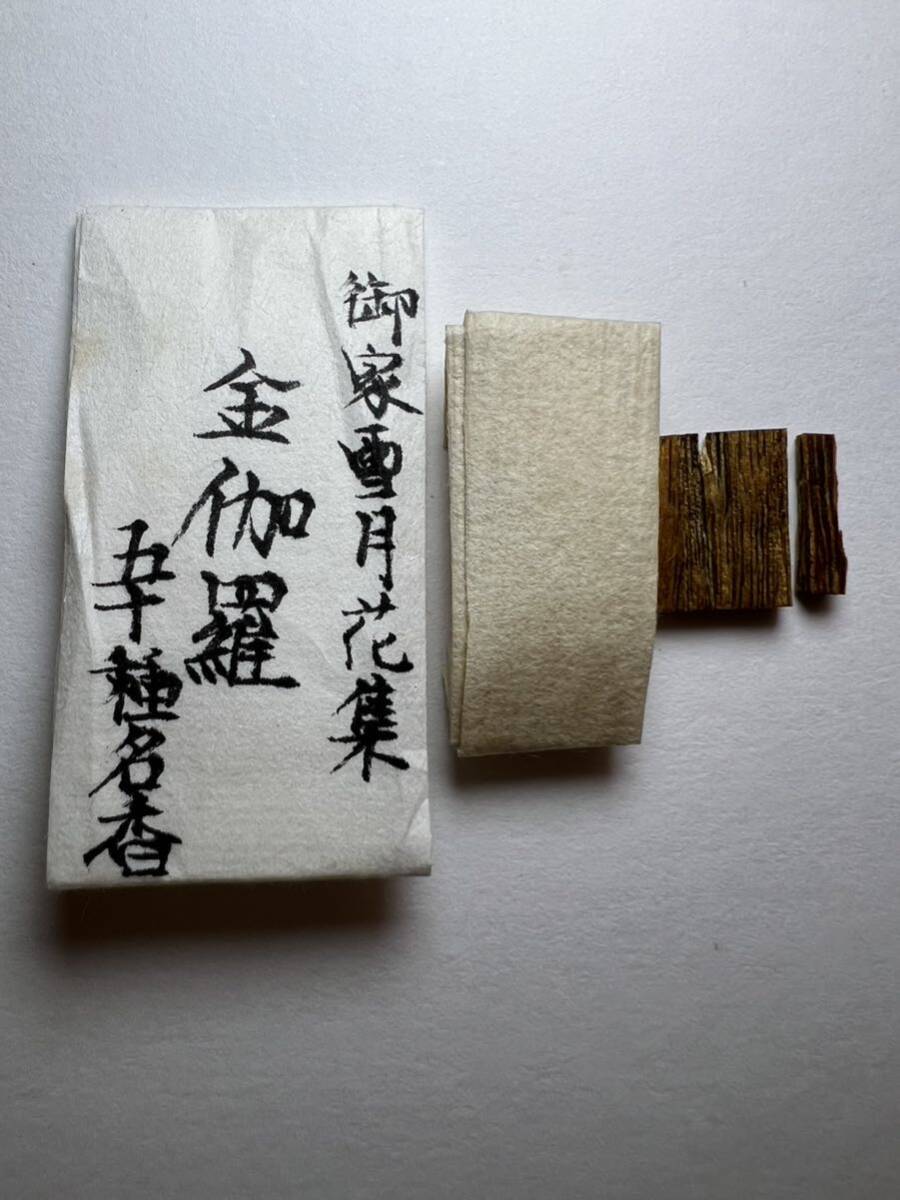 御家雪月花集
金伽羅
五十種名香